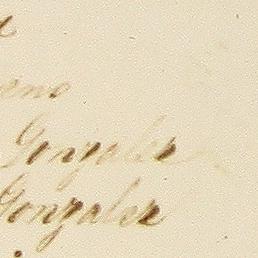 eno
Gonzalez
Gonzalez